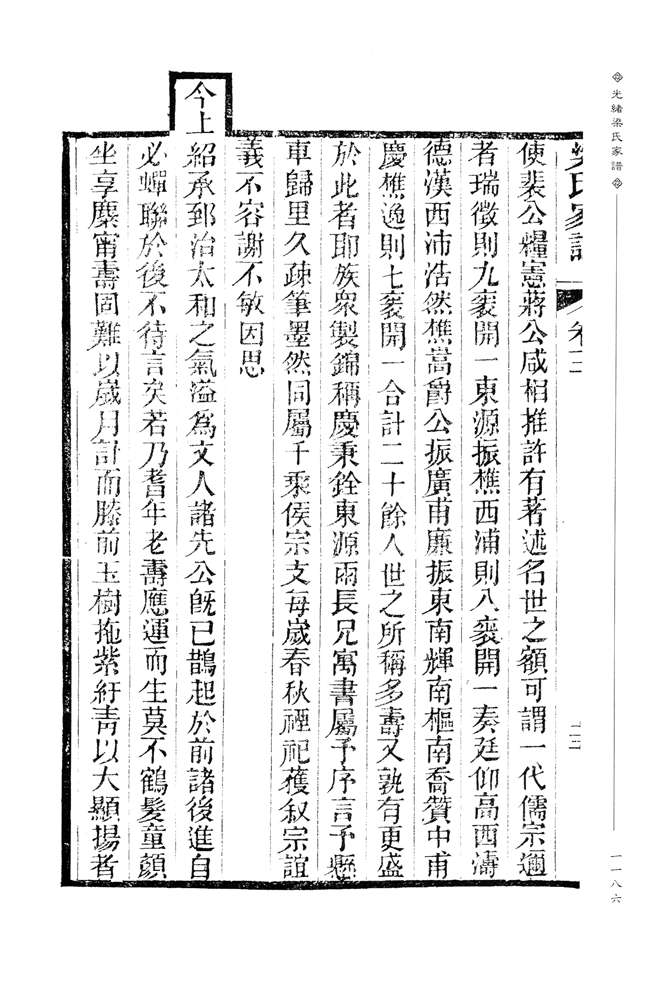 光緒梁氏家譜
一一八六
梁氏家譜 卷三 二三
使裴公糧憲蔣公咸相推許有著述名世之額可謂一代儒宗邇
者瑞徵則九袠開一東源振樵西浦則八袠開一奏廷仰高西濤
德漢西沛浩然樵嵩爵公振廣甫廉振東南輝南樞南喬贊中甫
慶樵逸則七袠開一合計二十餘人世之所稱多壽又孰有更盛
於此者耶族衆製錦稱慶秉銓東源兩長兄寓書屬予序言予懸
車歸里久疎筆墨然同屬千乘侯宗支每歲春秋禋祀獲叙宗誼
義不容謝不敏因思
今上紹承郅治太和之氣溢爲文人諸先公旣已鵲起於前諸後進自
必蟬聯於後不待言矣若乃耆年老壽應運而生莫不鶴髮童顏
坐享麋甯壽固難以歲月計而膝前玉樹拖紫紆靑以大顯揚者